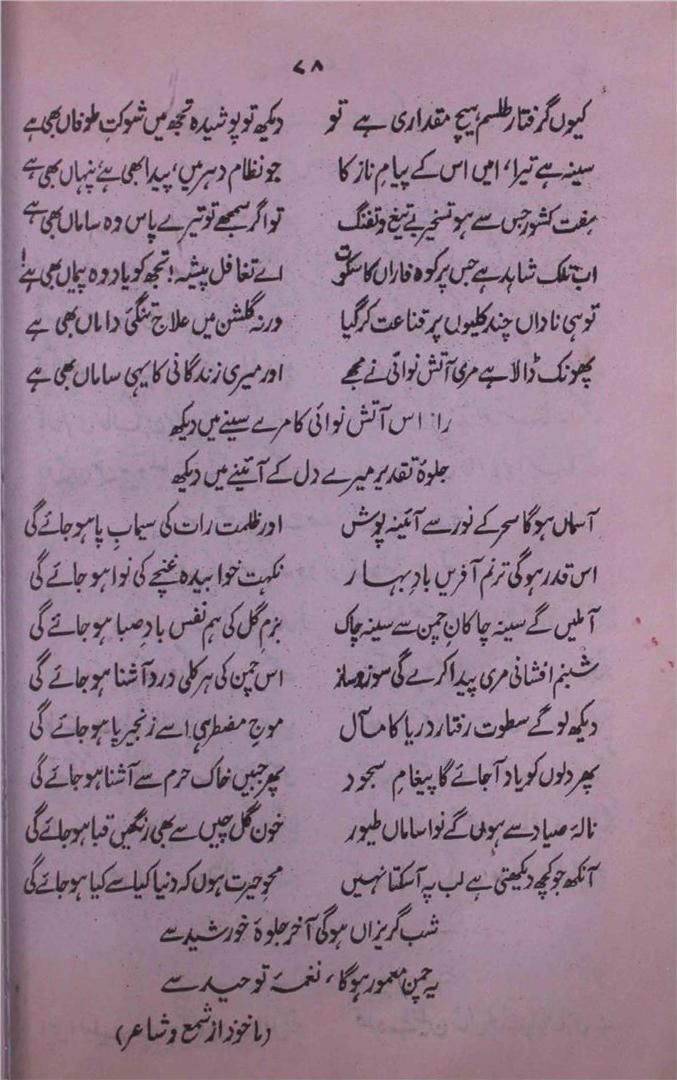 ۷۸
کیوں گرفتار طلسم ہیچ مقداری ہے تو دیکھ تو پوشیدہ تجھ میں شوکتِ طوفاں بھی ہے
سینہ ہے تیرا، امیں اس کے پیامِ ناز کا جو نظام دہر میں، پیدا بھی ہے پنہاں بھی ہے
ہفت کشور جس سے ہو تسخیر بے تیغ و تفنگ تو اگر سمجھے تو تیرے پاس وہ ساماں بھی ہے
اب تلک شاہد ہے جس پر کوہ فاراں کا سکوت اے تغافل پیشہ! تجھ کو یاد وہ پیماں بھی ہے!
تو ہی ناداں چند کلیوں پر قناعت کر گیا ورنہ گلشن میں علاجِ تنگیٔ داماں بھی ہے
پھونک ڈالا ہے مری آتش نوائی نے مجھے اور میری زندگانی کا یہی ساماں بھی ہے
راز اس آتش نوائی کا مرے سینے میں دیکھ
جلوۂ تقدیر میرے دل کے آئینے میں دیکھ
آسماں ہو گا سحر کے نور سے آئینہ پوش اور ظلمت رات کی سیماب پا ہو جائے گی
اس قدر ہو گی ترنم آفریں بادِ بہار نکہت خوابیدہ غنچے کی نوا ہو جائے گی
آملیں گے سینہ چاکانِ چمن سے سینہ چاک بزمِ گل کی ہم نفس بادِ صبا ہو جائے گی
شبنم افشانی مری پیدا کرے گی سوز و ساز اس چمن کی ہر کلی درد آشنا ہو جائے گی
دیکھ لو گے سطوت رفتار دریا کا مآل موج مضطر ہی اسے زنجیر پا ہو جائے گی
پھر دلوں کو یاد آ جائے گا پیغامِ سجود پھر جبیں خاک حرم سے آشنا ہو جائے گی
نالۂ صیاد سے ہوں گے نوا ساماں طیور خون گل چیں سے بھی رنگیں قبا ہو جائے گی
آنکھ جو کچھ دیکھتی ہے لب پہ آ سکتا نہیں محوِ حیرت ہوں کہ دنیا کیا سے کیا ہو جائے گی
شب گریزاں ہو گی آخر جلوۂ خورشید سے
یہ چمن معمور ہو گا، نغمۂ توحید سے
(ماخوذ از شمع و شاعر)